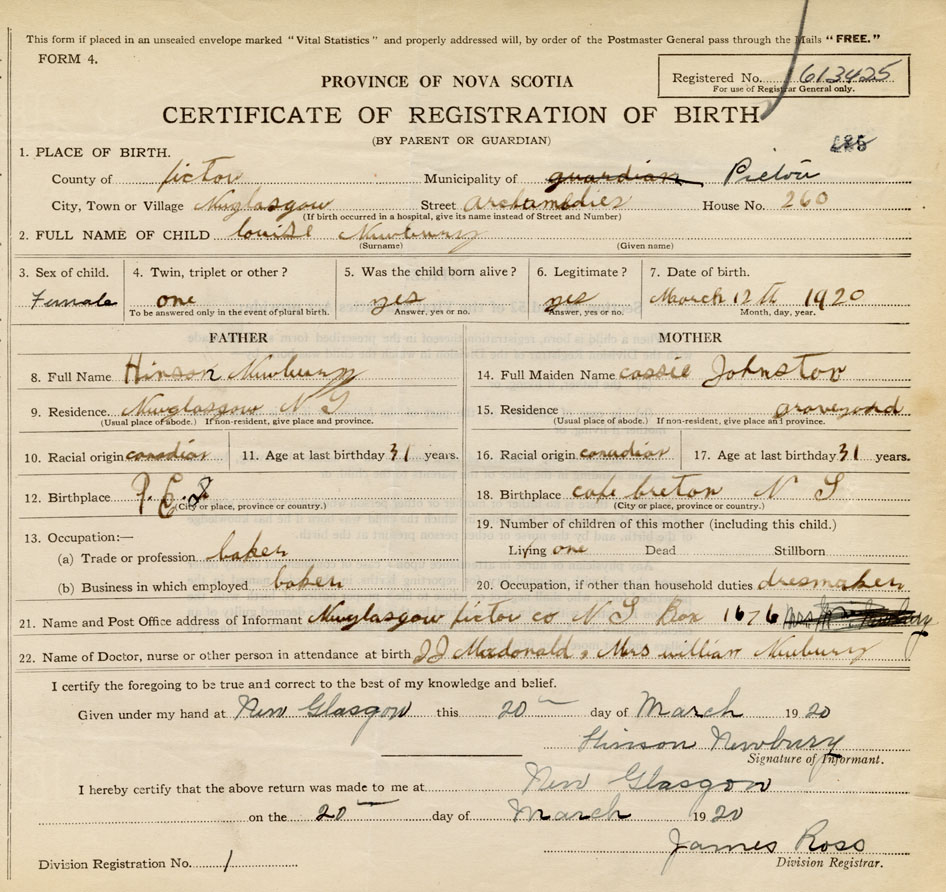 This form if placed in an unsealed envelope marked "Vital Statistics" and properly addressed will, by order of the Postmaster General pass through the Mails "FREE."
FORM 4.
Registered No. 613425
For use of Registrar General only.
PROVINCE OF NOVA SCOTIA
CERTIFICATE OF REGISTRATION OF BIRTH
(BY PARENT OR GUARDIAN)
1. PLACE OF BIRTH.
County of pictou Municipality of guardian Pictou
City, Town or Village Newglasgow Street archamedies House No. 260
(If birth occurred in a hospital, give its name instead of Street and Number)
2. FULL NAME OF CHILD louise Newbury
(Surname) (Given name)
3. Sex of child. 4. Twin, triplet or other? 5. Was the child born alive? 6. Legitimate? 7. Date of birth.
Female one yes yes March 12th 1920
To be answered only in the event of plural birth. Answer, yes or no. Answer, yes or no. Month, day, year.
FATHER MOTHER
8. Full Name Hinson Newbury 14. Full Maiden Name cassie Johnston
9. Residence. Newglasgow N S 15. Residence graveyard
(Usual place of abode.) If non-resident, give place and province. (Usual place of abode.) If non-resident, give place and province.
10. Racial origin canadian 11. Age at last birthday 31 years. 16. Racial origin canadian 17. Age at last birthday 31 years.
12. Birthplace P. E. I 18. Birthplace cape breton N S
(City or place, province or country.) (City or place, province or country.)
13. Occupation:— 19. Number of children of this mother (including this child.)
(a) Trade or profession baker Living one Dead Stillborn
(b) Business in which employed baker 20. Occupation, if other than household duties dresmaker
21. Name and Post Office address of Informant Newglasgow pictor co N S Box 1676 Mrs Wm Newbury
22. Name of Doctor, nurse or other person in attendance at birth JJ Macdonald, Mrs willian Newbury
I certify the foregoing to be true and correct to the best of my knowledge and belief.
Given under my hand at New Glasgow this 20 day of March 1920
Hinson Newbury
Signature of Informant.
I hereby certify that the above return was made to me at New Glasgow
on the 20 day of March 1920
James Ross
Division Registration No. 1 Division Registrar.